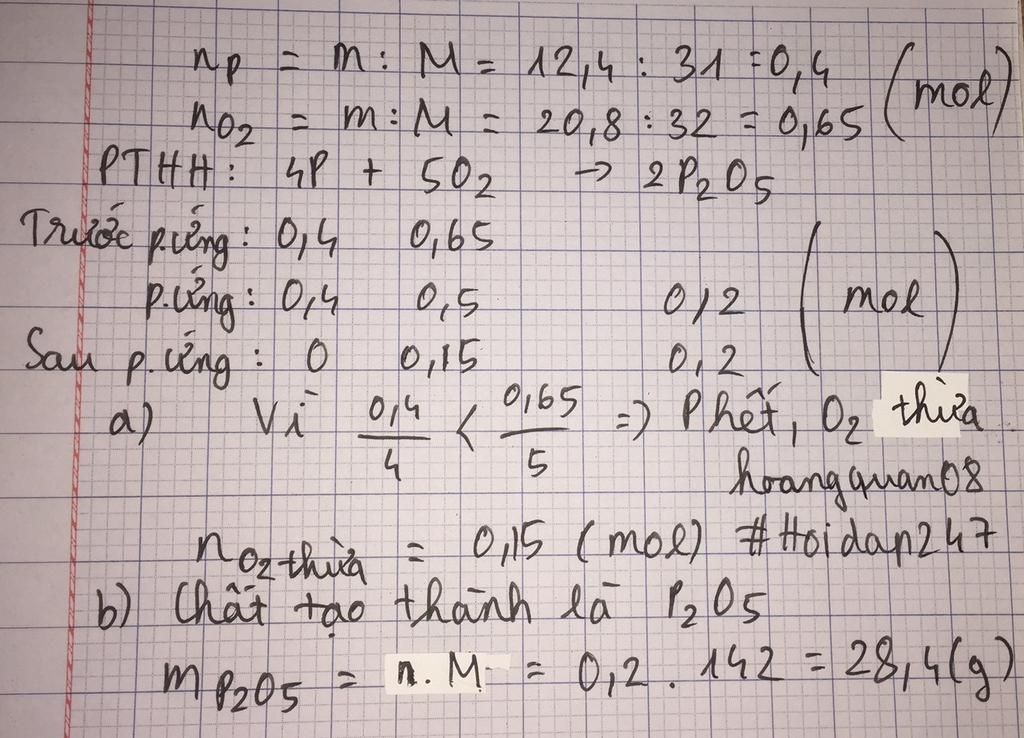 nP = m : M = 12,4 : 31 = 0,4 (mol)
nO2 = m : M = 20,8 : 32 = 0,65
PTHH: 4P + 5O2 → 2P2O5
Trước p.ứng: 0,4 0,65
p.ứng: 0,4 0,5 0,2 (mol)
Sau p.ứng: 0 0,15 0,2
a) Vì 0,4/4 < 0,65/5 => P hết, O2 thừa
hoangquan08
nO2 thừa = 0,15 (mol) #Hoidap247
b) Chất tạo thành là P2O5
mP2O5 = n.M = 0,2 . 142 = 28,4(g)